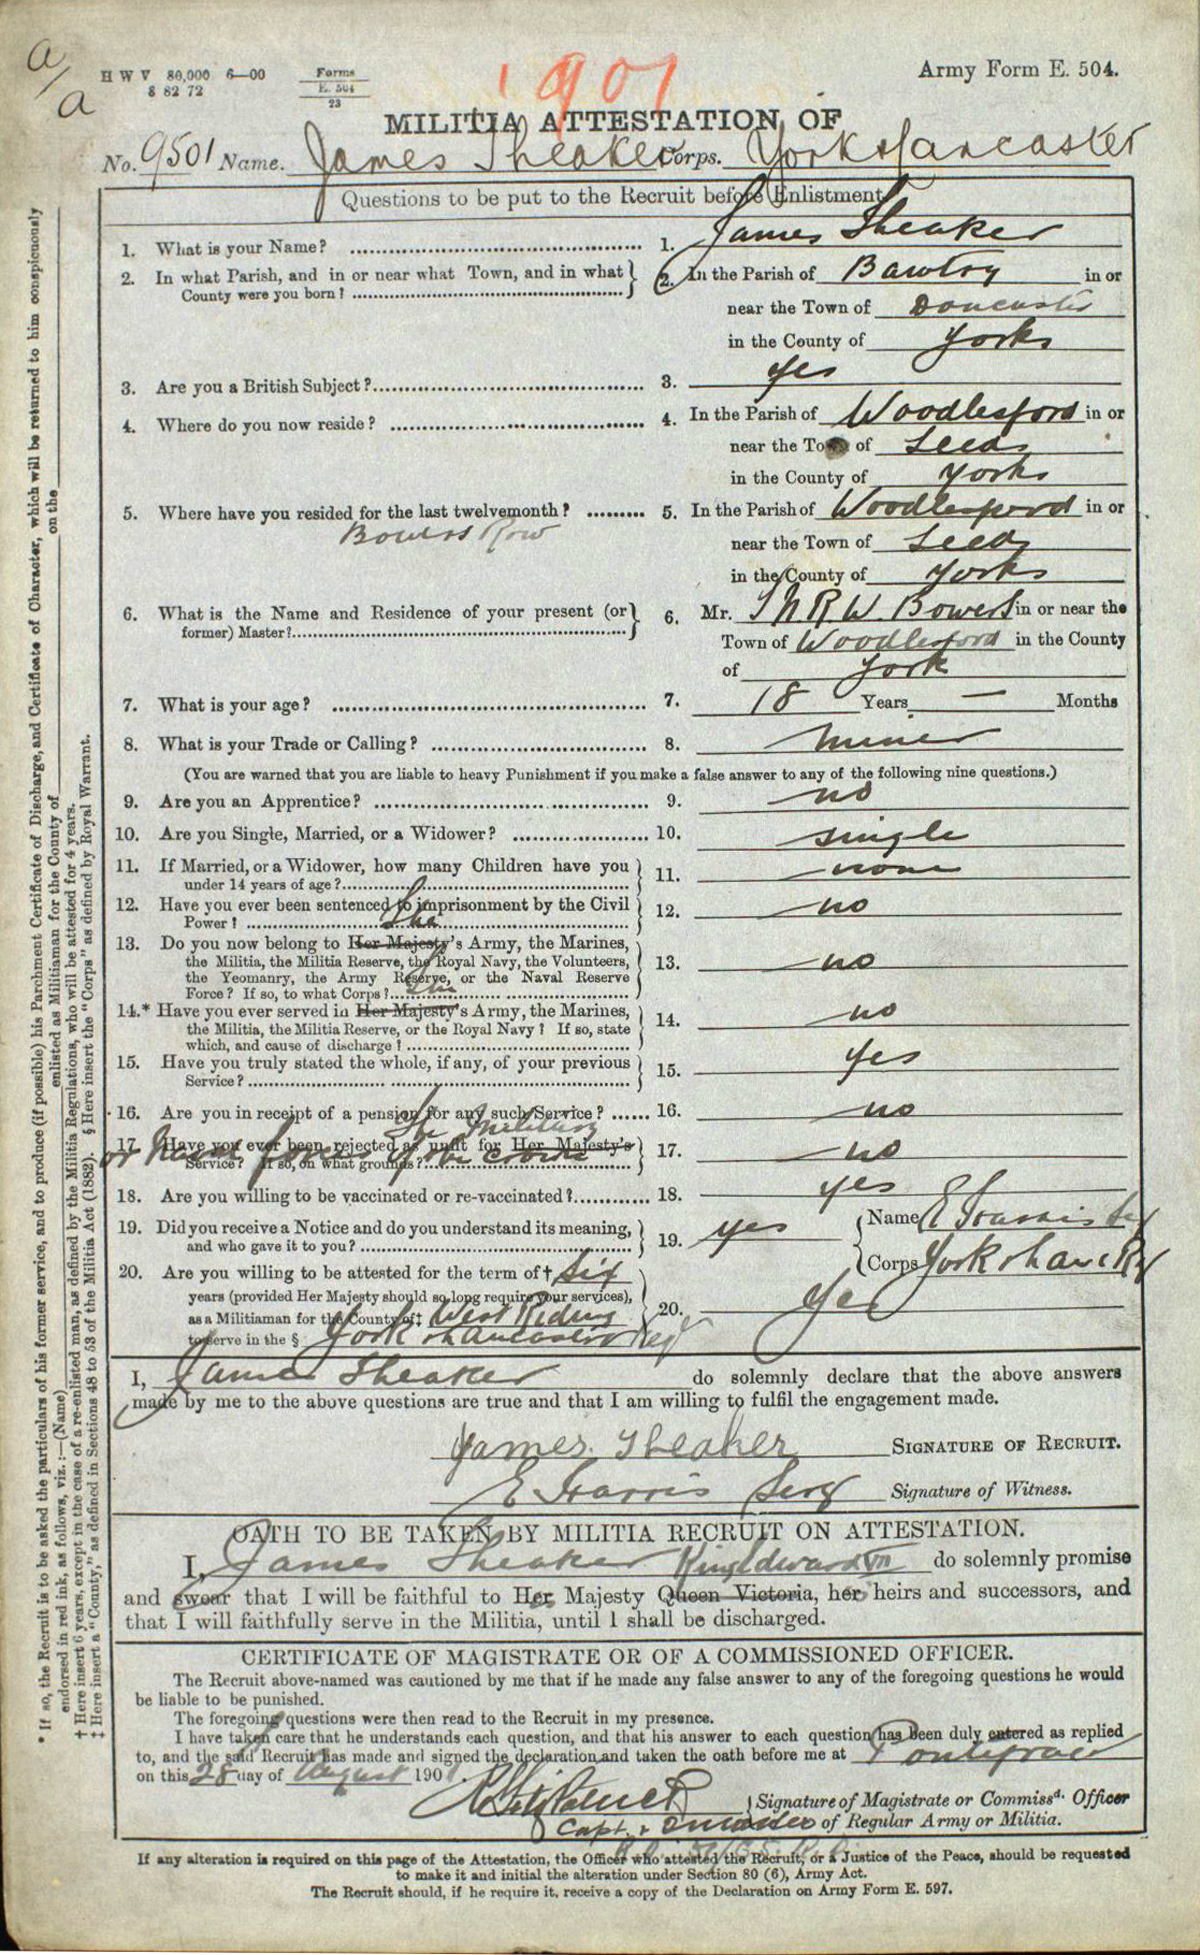 a/a
H W V 80,000 6—00
8 82 72
Forms
E. 504
23
1901
Army Form E. 504.
MILITIA ATTESTATION OF
No. 9501 Name. James Theaker Corps. York & Lancaster
Questions to be put to the Recruit before Enlistment
1. What is your Name? 1. James Theaker
2. In what Parish, and in or near what Town, and in what County were you born? 2. In the Parish of Bawtry in or
near the Town of Doncaster
in the County of Yorks
3. Are you a British Subject? 3. Yes
4. Where do you now reside? 4. In the Parish of Woodlesford in or
near the Town of Leeds
in the County of Yorks
5. Where have you resided for the last twelvemonth? 5. In the Parish of Woodlesford in or
Bowers Row
near the Town of Leeds
in the County of Yorks
6. What is the Name and Residence of your present (or former) Master? 6. Mr. W. Bowers in or near the
Town of Woodlesford in the County
of York
7. What is your age? 7. 18 Years — Months
8. What is your Trade or Calling? 8. Miner
(You are warned that you are liable to heavy Punishment if you make a false answer to any of the following nine questions.)
9. Are you an Apprentice? 9. no
10. Are you Single, Married, or a Widower? 10. single
11. If Married, or a Widower, how many Children have you
under 14 years of age? 11. none
12. Have you ever been sentenced to imprisonment by the Civil
Power? 12. no
13. Do you now belong to Her Majesty's Army, the Marines,
the Militia, the Militia Reserve, the Royal Navy, the Volunteers,
the Yeomanry, the Army Reserve, or the Naval Reserve
Force? If so, to what Corps? 13. no
14.* Have you ever served in Her Majesty's Army, the Marines,
the Militia, the Militia Reserve, or the Royal Navy? If so, state
which, and cause of discharge? 14. no
15. Have you truly stated the whole, if any, of your previous
Service? 15. yes
16. Are you in receipt of a pension for any such Service? 16. no
The Military
17. Have you ever been rejected as unfit for Her Majesty's
or Naval forces of the crown
Service? If so, on what grounds? 17. no
18. Are you willing to be vaccinated or re-vaccinated? 18. yes
19. Did you receive a Notice and do you understand its meaning,
and who gave it to you? 19. yes Name E Harris Sergt
Corps York & Lanc Rg
20. Are you willing to be attested for the term of † Six
years (provided Her Majesty should so long require your services),
as a Militiaman for the County of ‡ West Riding
to serve in the § York & Lancaster Regt 20. Yes
I, James Theaker do solemnly declare that the above answers
made by me to the above questions are true and that I am willing to fulfil the engagement made.
James Theaker SIGNATURE OF RECRUIT.
E Harris Sergt Signature of Witness.
OATH TO BE TAKEN BY MILITIA RECRUIT ON ATTESTATION.
I, James Theaker King Edward VII do solemnly promise
and swear that I will be faithful to Her Majesty Queen Victoria, her heirs and successors, and
that I will faithfully serve in the Militia, until I shall be discharged.
CERTIFICATE OF MAGISTRATE OR OF A COMMISSIONED OFFICER.
The Recruit above-named was cautioned by me that if he made any false answer to any of the foregoing questions he would
be liable to be punished.
The foregoing questions were then read to the Recruit in my presence.
I have taken care that he understands each question, and that his answer to each question has been duly entered as replied
to, and the said Recruit has made and signed the declaration and taken the oath before me at Pontefract
on this 28 day of August 1901
Signature of Magistrate or Commissd. Officer
Capt. & of Regular Army or Militia.
If any alteration is required on this page of the Attestation, the Officer who attested the Recruit, or a Justice of the Peace, should be requested
to make it and initial the alteration under Section 80 (6), Army Act.
The Recruit should, if he require it, receive a copy of the Declaration on Army Form E. 597.
* If so, the Recruit is to be asked the particulars of his former service, and to produce (if possible) his Parchment Certificate of Discharge, and Certificate of Character, which will be returned to him conspicuously
endorsed in red ink, as follows, viz.:—(Name) enlisted as Militiaman for the County of on the
† Here insert 6 years, except in the case of a re-enlisted man, as defined by the Militia Regulations, who will be attested for 4 years.
‡ Here insert a "County," as defined in Sections 48 to 53 of the Militia Act (1882). § Here insert the "Corps" as defined by Royal Warrant.